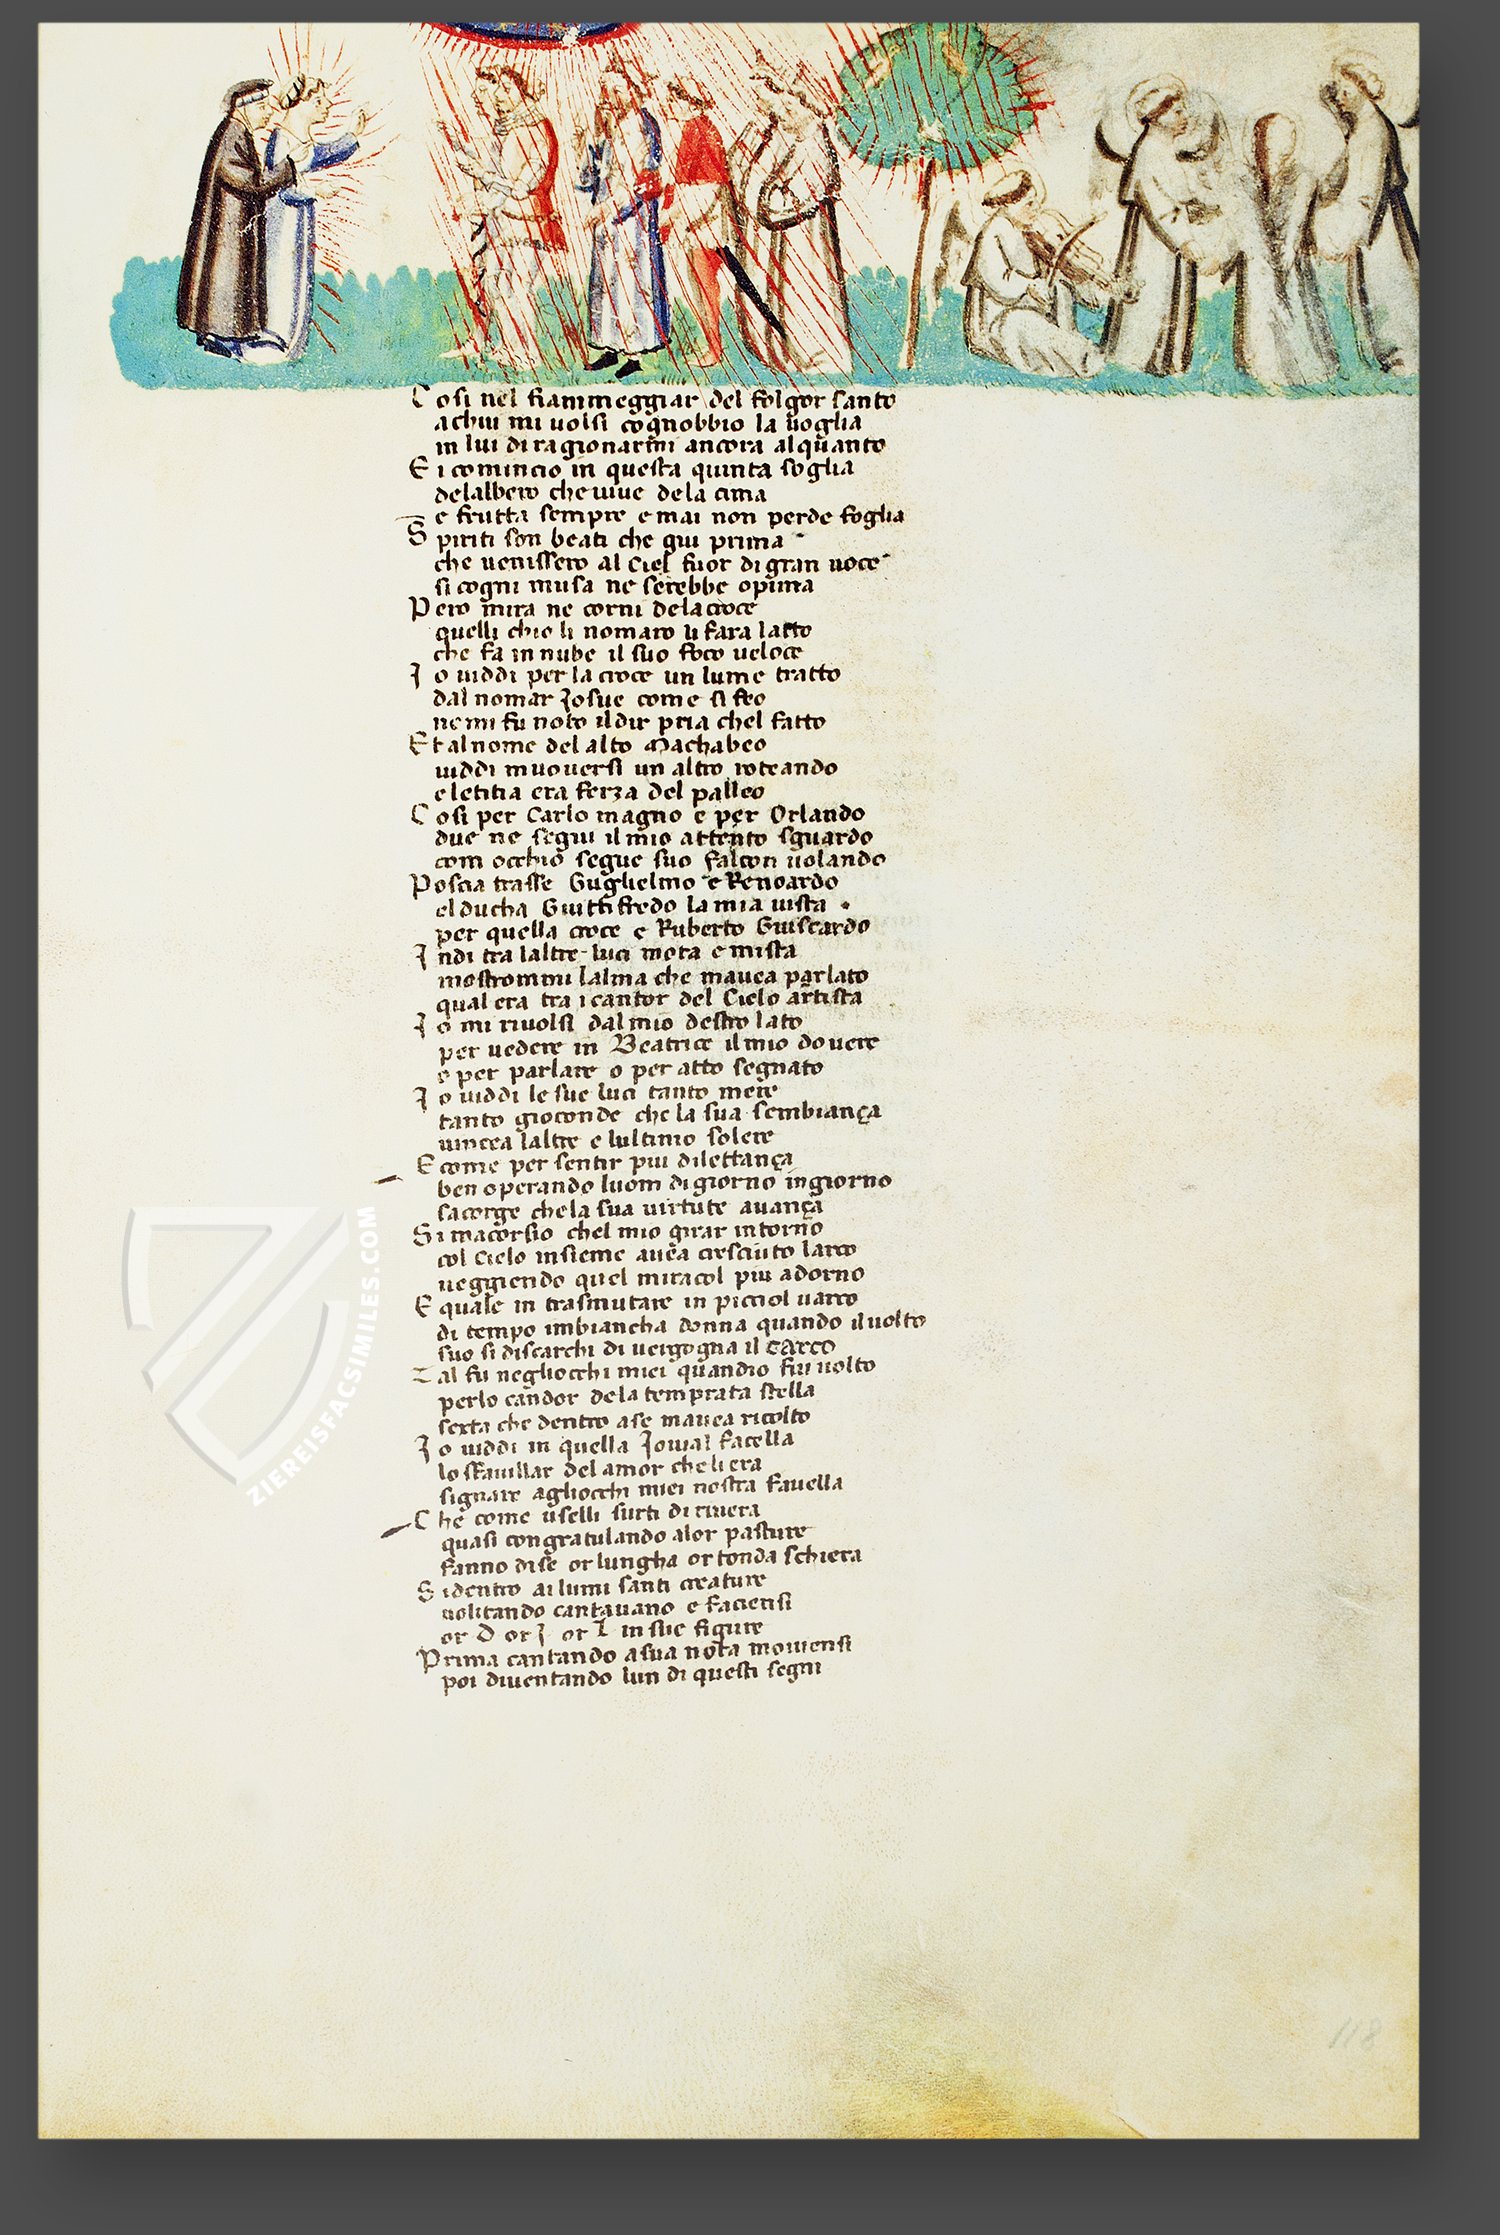 Cosi nel fiammeggiar del folgor santo
achui mi uolsi cognobbio la uoglia
in lui di ragionarmi ancora alquanto
Ei comincio in questa quinta soglia
delalbero che uiue dela cima
e frutta sempre e mai non perde foglia
Spiriti son beati che giu prima
che uenissero al Ciel fuor di gran uoce
si cogni musa ne serebbe opima
Pero mira ne corni dela croce
quelli chio li nomaro li fara latto
che fa in nube il suo foco ueloce
Jo uiddi per la croce un lume tratto
dal nomar Josue come si feo
ne mi fu noto il dir pria chel fatto
Et al nome del alto Machabeo
uiddi muouersi un altro roteando
e letitia era ferza del palleo
Cosi per Carlo magno e per Orlando
due ne segui il mio attento sguardo
com occhio segue suo falcon uolando
Poscia trasse Guglielmo e Renoardo
el ducha Guittifredo la mia uista
per quella croce e Ruberto Guiscardo
Indi tra laltre luci mota e mista
mostrommi lalma che mauea parlato
qual era tra i cantor del Cielo artista
Jo mi riuolsi dal mio destro lato
per uedere in Beatrice il mio douere
o per parlare o per atto segnato
Jo uiddi le sue luci tanto mere
tanto gioconde che la sua sembiança
uincea laltre e lultimo solere
E come per sentir piu dilettança
ben operando luom di giorno in giorno
sacorge che la sua uirtute auança
Si macorsio chel mio girar intorno
col Cielo insieme auea cresciuto larco
ueggiendo quel miracol piu adorno
E quale in trasmutare in picciol uarco
di tempo imbiancha donna quando il uolto
suo si discarchi di uergogna il carco
Tal fu negliocchi miei quandio fui uolto
perlo candor dela temprata stella
sexta che dentro a se mauea ricolto
Jo uiddi in quella Jouial facella
lo sfauillar del amor che li era
signare agliocchi miei nostra fauella
Che come uselli surti di riuera
quasi congratulando alor pasture
fanno di se or lungha or tonda schiera
Si dentro ai lumi santi creature
uolitando cantauano e faciensi
or D or J or L in sue figure
Prima cantando a sua nota mouiensi
poi diuentando lun di questi segni
118
ZIEREISFACSIMILES.COM